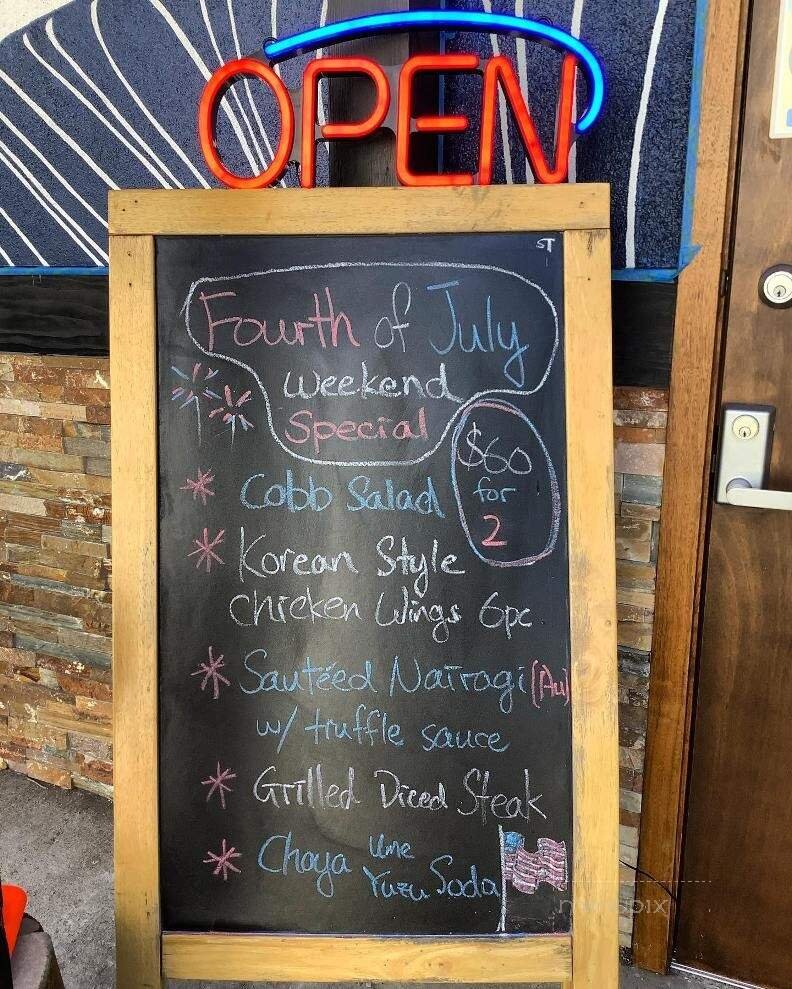 OPEN
ST
Fourth of July
Weekend
Special
$60
for
2
Cobb Salad
Korean Style
Chicken Wings 6pc
Sautéed Nairagi (Au)
w/ truffle sauce
Grilled Diced Steak
Choya Ume
Yuzu Soda